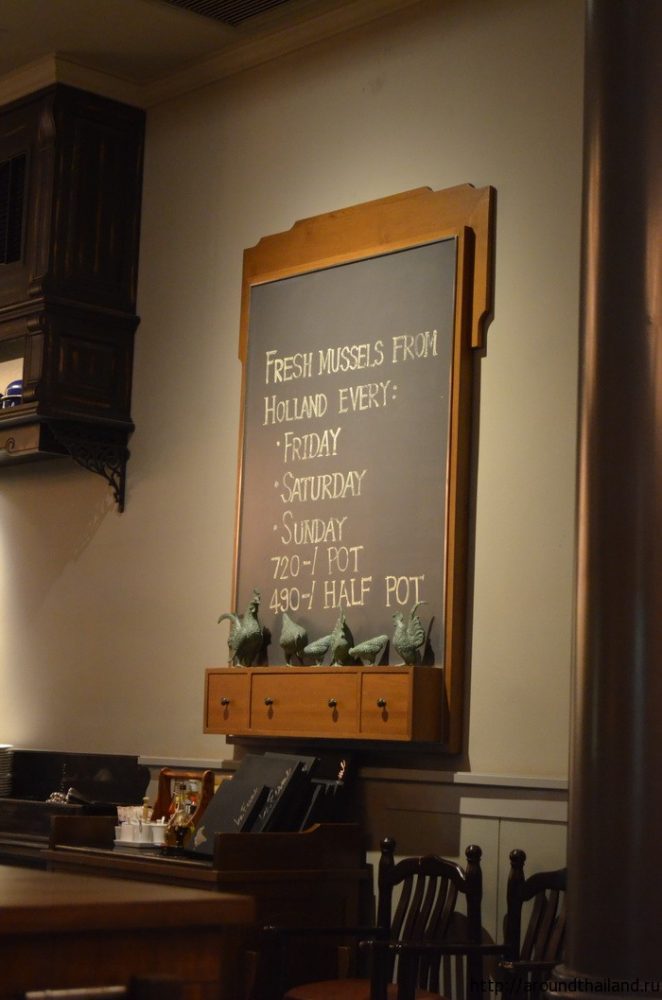 FRESH MUSSELS FROM
HOLLAND EVERY:
·FRIDAY
·SATURDAY
·SUNDAY
720-/ POT
490-/ HALF POT
http://aroundthailand.ru